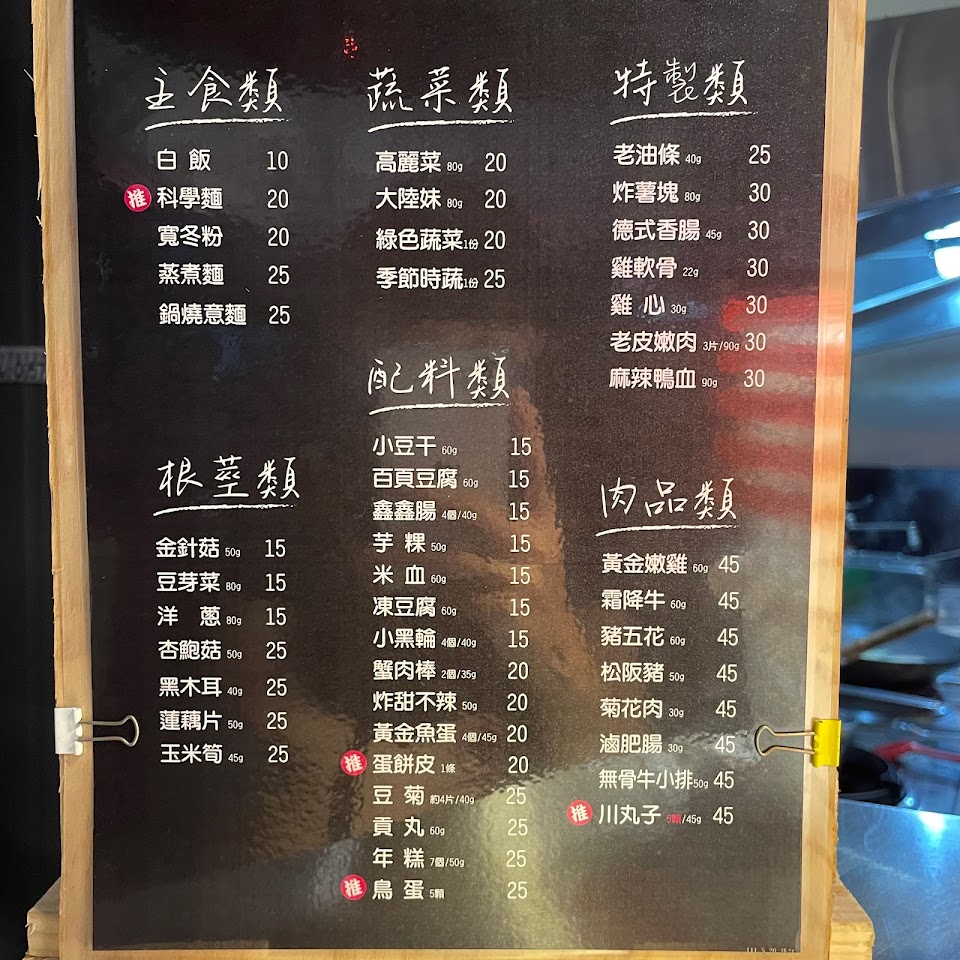 主食類
白飯 10
推 科學麵 20
寬冬粉 20
蒸煮麵 25
鍋燒意麵 25
根莖類
金針菇 50g 15
豆芽菜 80g 15
洋蔥 80g 15
杏鮑菇 50g 25
黑木耳 40g 25
蓮藕片 50g 25
玉米筍 45g 25
蔬菜類
高麗菜 80g 20
大陸妹 80g 20
綠色蔬菜 1份 20
季節時蔬 1份 25
配料類
小豆干 60g 15
百頁豆腐 60g 15
鑫鑫腸 4個/40g 15
芋粿 50g 15
米血 60g 15
凍豆腐 60g 15
小黑輪 4個/40g 15
蟹肉棒 2個/35g 20
炸甜不辣 50g 20
黃金魚蛋 4個/45g 20
推 蛋餅皮 1條 20
豆菊 約4片/40g 25
貢丸 60g 25
年糕 7個/50g 25
推 鳥蛋 5顆 25
特製類
老油條 40g 25
炸薯塊 80g 30
德式香腸 45g 30
雞軟骨 22g 30
雞心 30g 30
老皮嫩肉 3片/90g 30
麻辣鴨血 90g 30
肉品類
黃金嫩雞 60g 45
霜降牛 60g 45
豬五花 60g 45
松阪豬 50g 45
菊花肉 30g 45
滷肥腸 30g 45
無骨牛小排 50g 45
推 川丸子 5顆/45g 45